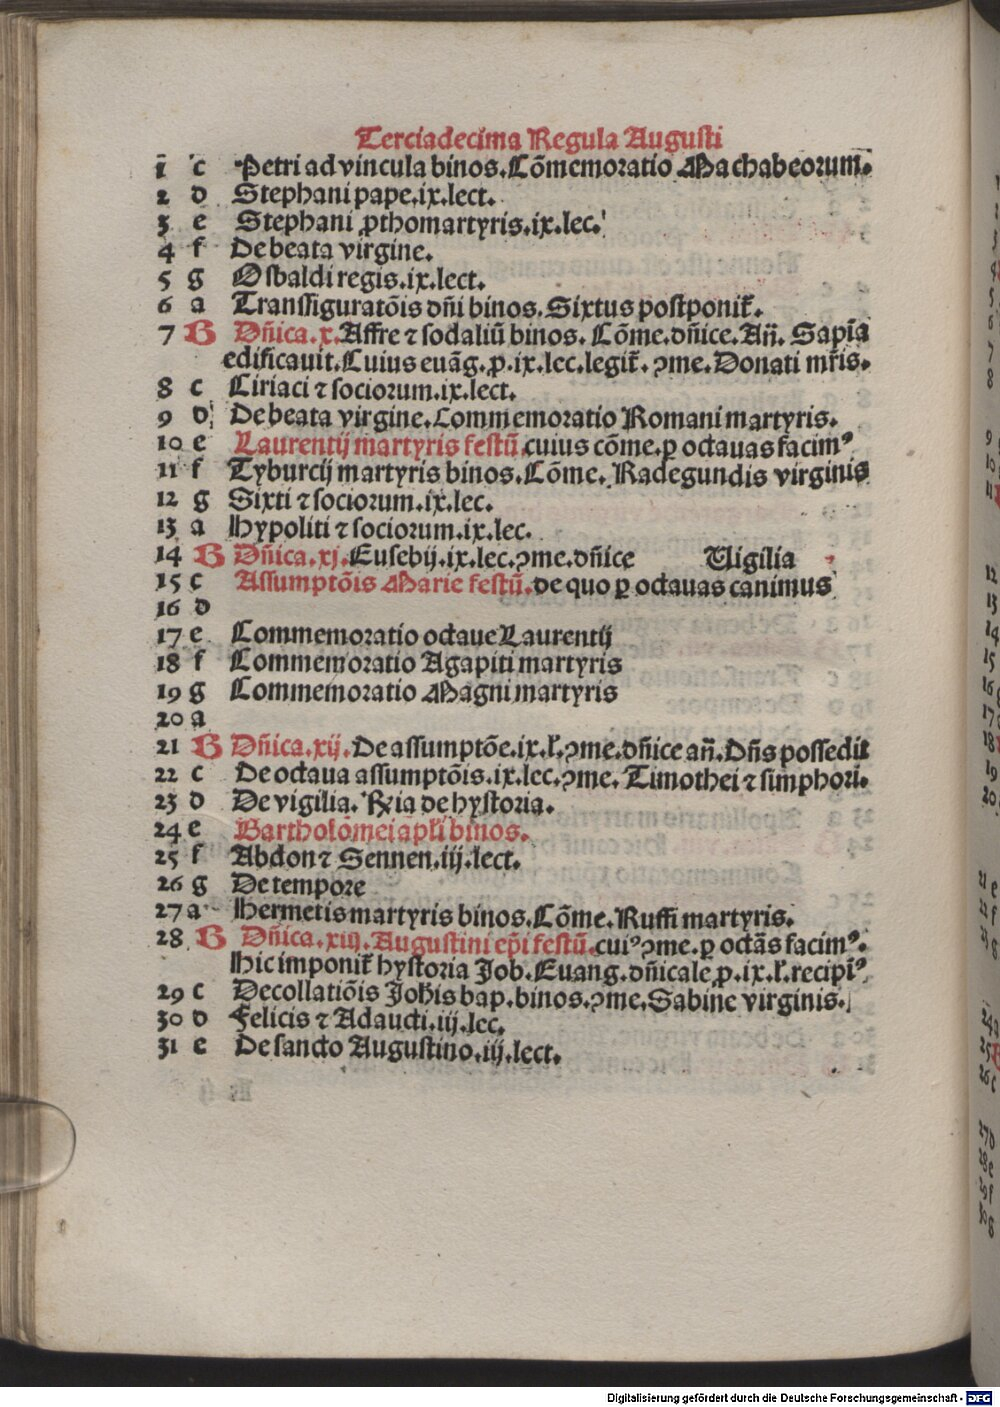 Terciadecima Regula Augusti
1 c Petri ad vincula binos. Cõmemoratio Machabeorum.
2 d Stephani pape. ix. lect.
3 e Stephani ꝓthomartyris. ix. lec.
4 f De beata virgine.
5 g Osbaldi regis. ix. lect.
6 a Transfiguratõis dñi binos. Sixtus postponit̃.
7 B Dñica. x. Affre ⁊ sodaliũ binos. Cõme. dñice. Añ. Sapĩa
edificauit. Cuius euãg. ꝓ. ix. lec. legit̃. ꝯme. Donati mr̃is.
8 c Ciriaci ⁊ sociorum. ix. lect.
9 d De beata virgine. Commemoratio Romani martyris.
10 e Laurentij martyris festũ. cuius cõme. ꝑ octauas facimꝰ
11 f Tyburcij martyris binos. Cõme. Radegundis virginis
12 g Sixti ⁊ sociorum. ix. lec.
13 a Hypoliti ⁊ sociorum. ix. lec.
14 B Dñica. xj. Eusebij. ix. lec. ꝯme. dñice Uigilia
15 c Assumptõis Marie festũ. de quo ꝑ octauas canimus
16 d
17 e Commemoratio octaue Laurentij
18 f Commemoratio Agapiti martyris
19 g Commemoratio Magni martyris
20 a
21 B Dñica. xij. De assumptõe. ix. l̃. ꝯme. dñice añ. Dñs possedit
22 c De octaua assumptõis. ix. lec. ꝯme. Timothei ⁊ simphori.
23 d De vigilia. R̃ia de hystoria.
24 e Bartholõmei apl̃i binos.
25 f Abdon ⁊ Sennen. iij. lect.
26 g De tempore
27 a Hermetis martyris binos. Cõme. Ruffi martyris.
28 B Dñica. xiij. Augustini ep̃i festũ. cuiꝰ ꝯme. ꝑ octãs facimꝰ.
Hic imponit̃ hystoria Job. Euang. dñicale ꝓ. ix. l̃. recipĩꝰ
29 c Decollatiõis Joh̃is bap. binos. ꝯme. Sabine virginis.
30 d Felicis ⁊ Adaucti. iij. lec.
31 e De sancto Augustino. iij. lect.
Digitalisierung gefördert durch die Deutsche Forschungsgemeinschaft - DFG